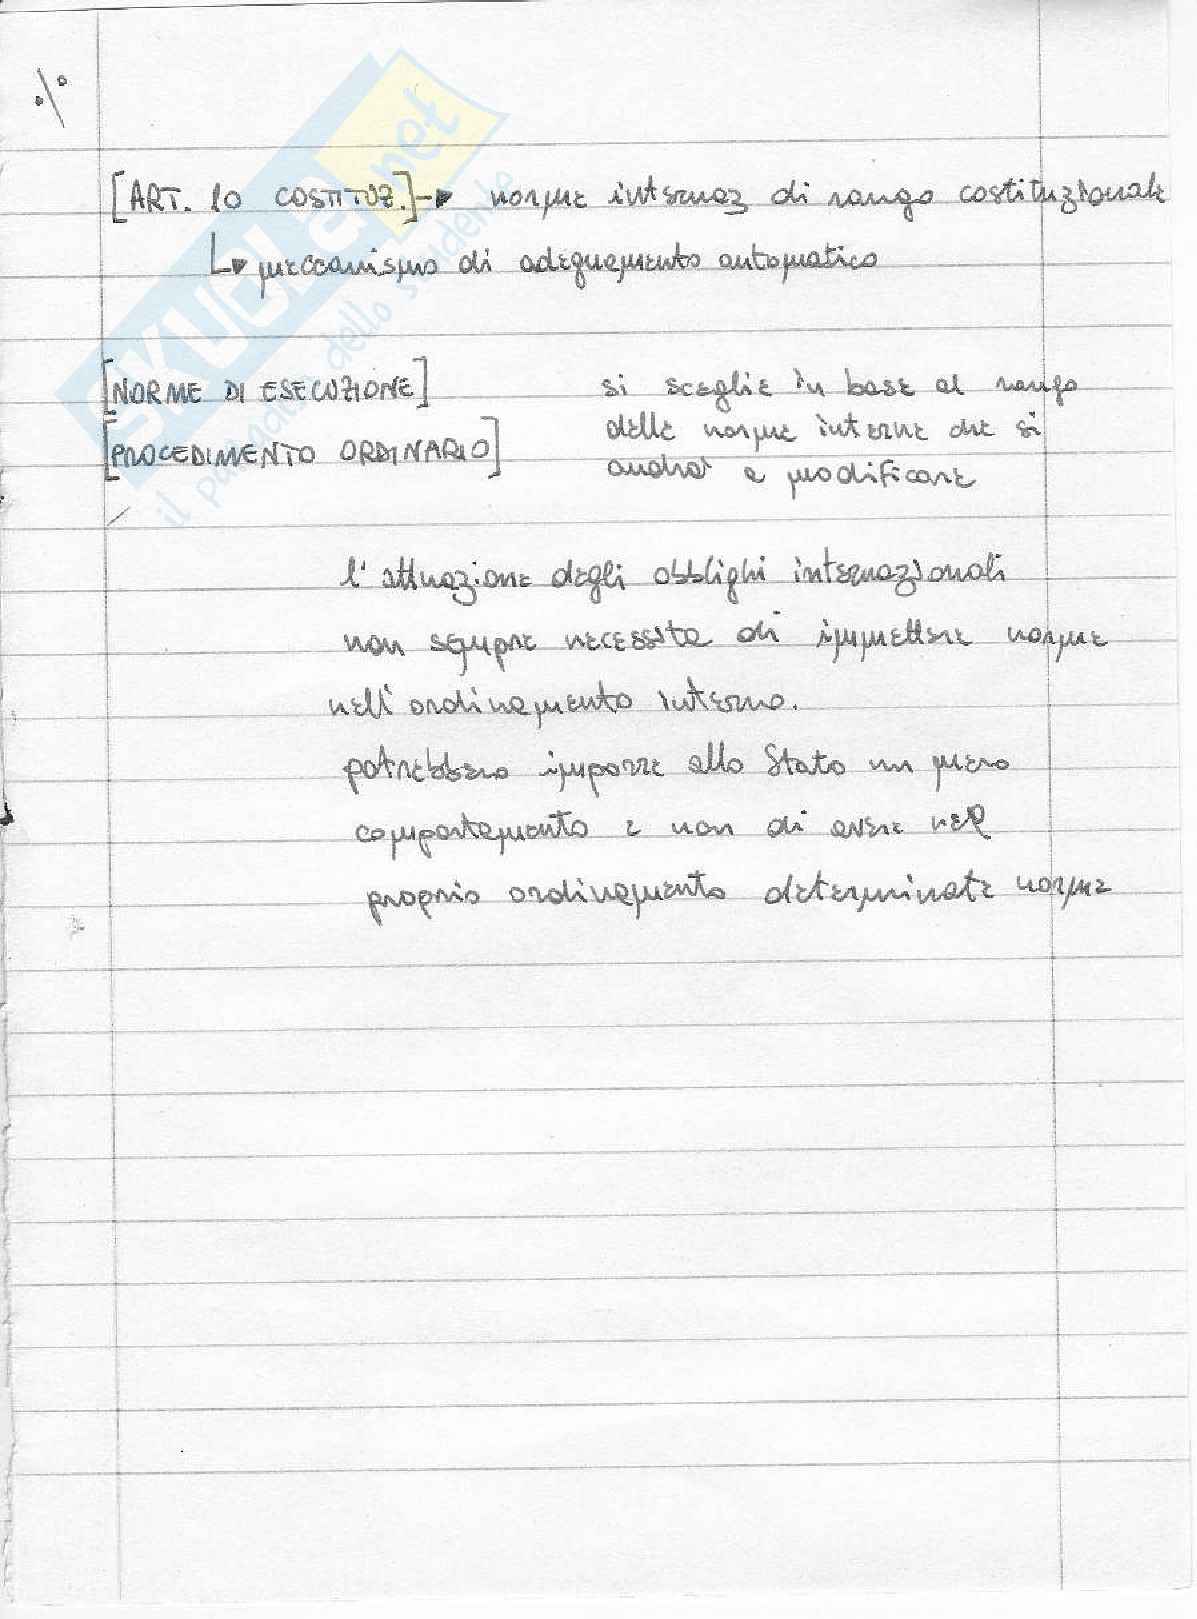 ./.
[ART. 10 COSTITUZ.] → norme internaz di rango costituzionale
↳ meccanismo di adeguamento automatico
[NORME DI ESECUZIONE]
[PROCEDIMENTO ORDINARIO]
si sceglie in base al rango
delle norme interne che si
andrà a modificare
l'attuazione degli obblighi internazionali
non sempre necessita di immettere norme
nell'ordinamento interno.
potrebbero imporre allo Stato un mero
comportamento e non di avere nel
proprio ordinamento determinate norme
SKUOLA.net
il paradiso dello studente